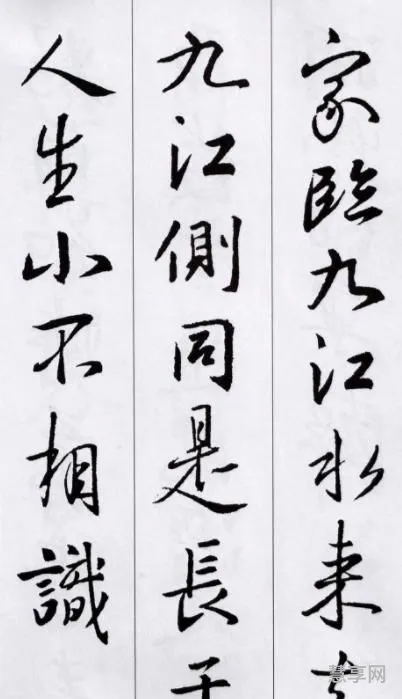 家臨九江水来
九江側同是長
人生小不相識
慧享网